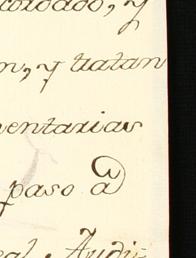 cordado, y
n, y tratan
mentarias
paso a
eal Audi